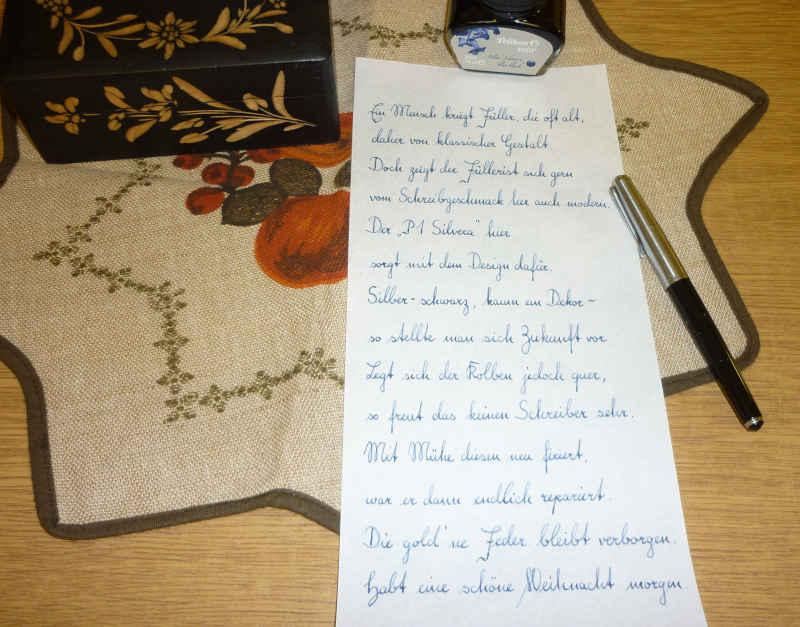 Pelikan
4001
Ein Mensch kriegt Füller, die oft alt,
daher von klassischer Gestalt.
Doch zeigt der Füllerist sich gern
vom Schreibgeschmack her auch modern.
Der „P1 Silvexa" hier
sorgt mit dem Design dafür.
Silber-schwarz, kaum ein Dekor ~
so stellte man sich Zukunft vor.
Legt sich der Kolben jedoch quer,
so freut das keinen Schreiber sehr.
Mit Mühe diesen neu fixiert,
war er dann endlich repariert.
Die gold'ne Feder bleibt verborgen.
Habt eine schöne Weihnacht morgen.